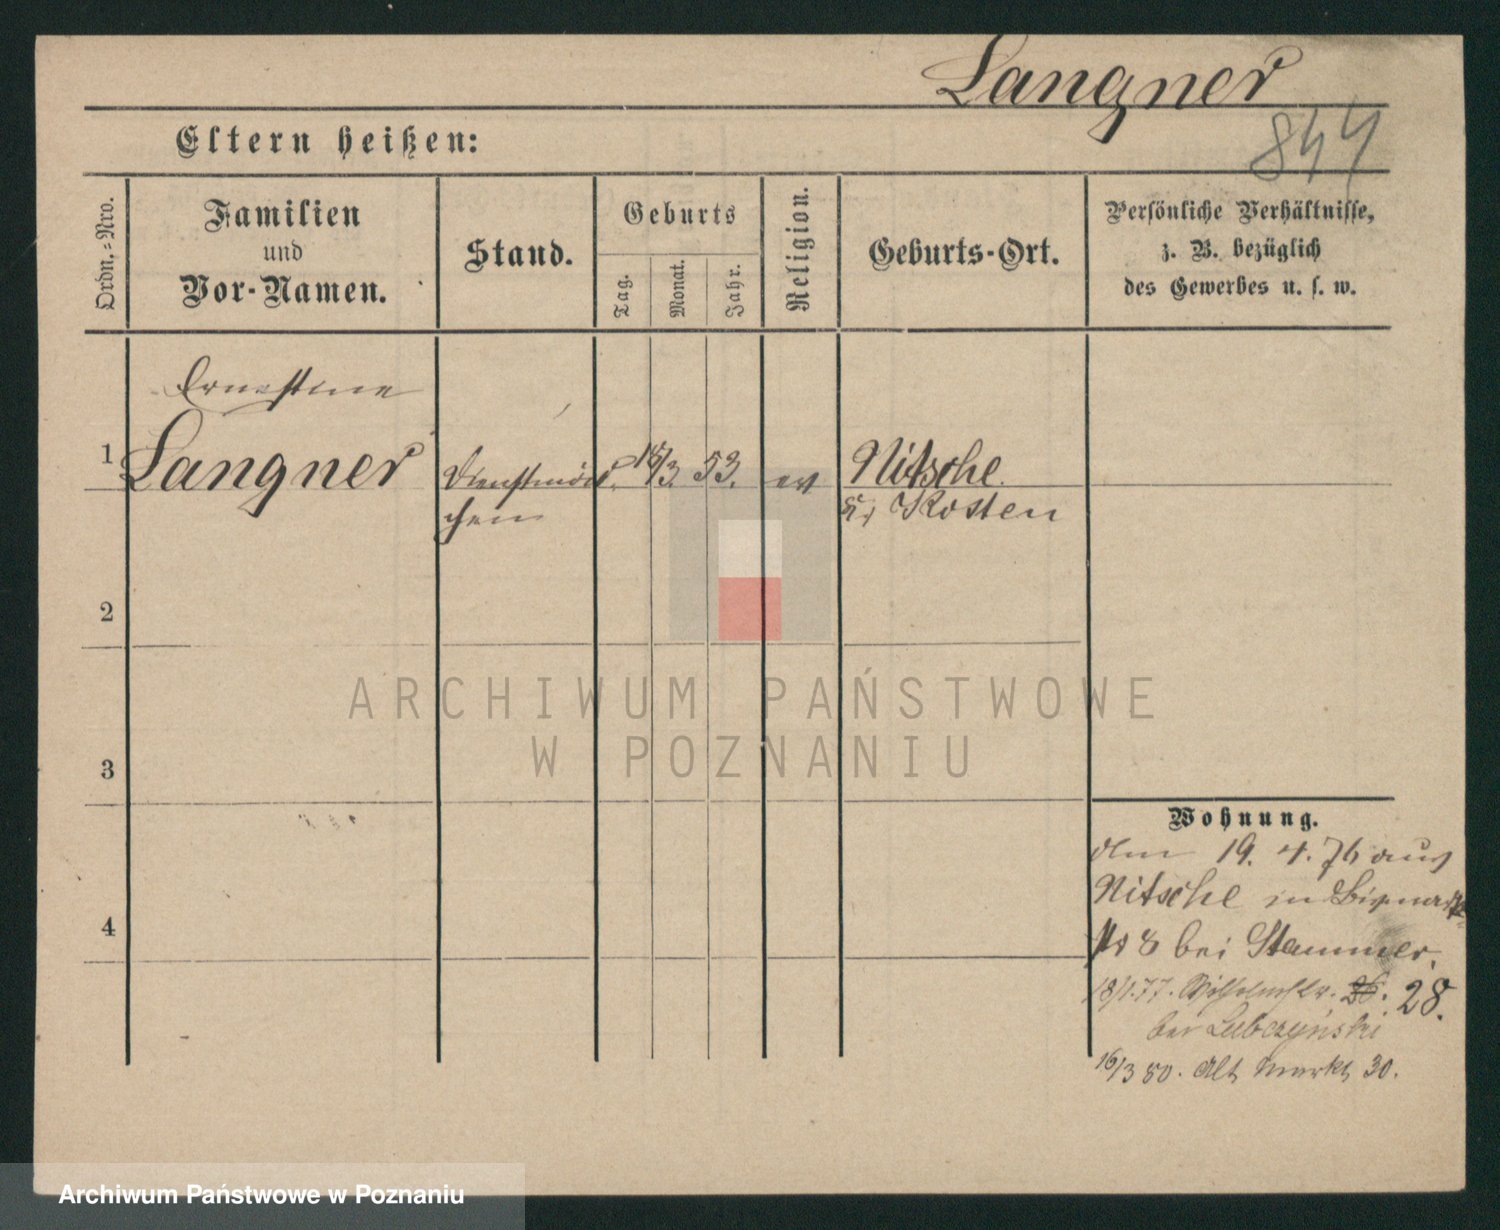 Langner
844
Eltern heißen:
Ordn.=Nro.
Familien
und
Vor-Namen.
Stand.
Geburts
Tag.
Monat.
Jahr.
Religion.
Geburts-Ort.
Persönliche Verhältnisse,
z. B. bezüglich
des Gewerbes u. s. w.
Ernestine
1 Langner Dienstmäd 18/3. 53. ev Nitsche
chen Kr. Kosten
2
3
4
Wohnung.
19. 4. 76 aus
Nitsche in Bismark
8 bei Stammer.
18/1.77. Wilhelmstr. 26. 28.
bei Lubczynski
16/3 80. Alt Markt 30.
ARCHIWUM PAŃSTWOWE
W POZNANIU
Archiwum Państwowe w Poznaniu